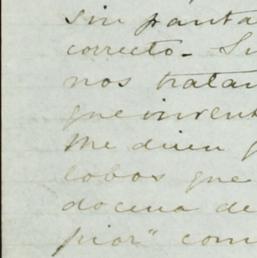 sin panta
correcto. Su
nos tratan
que invent
Me dicen q
lobos que
docena de
pior" com